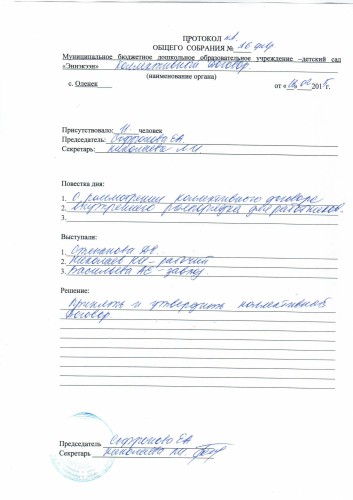 ПРОТОКОЛ №1
ОБЩЕГО СОБРАНИЯ № 16 фев.
Муниципальное бюджетное дошкольное образовательное учреждение –детский сад
«Энигэстэн» коллективный договор.
(наименование органа)
с. Оленек от « 16.02 2015 г.
Присутствовало: 11 человек
Председатель: Софронова ЕА.
Секретарь: Николаева М.И.
Повестка дня:
1. О рассмотрении коллективного договора
2. внутреннего распорядка для работников.
3.
Выступали:
1. Степанова
2. Николаев КИ – рабочий
3. Васильева АЕ – завхоз
Решение:
Принять и утвердить коллективный
договор
Председатель Софронова ЕА
Секретарь Николаева М.